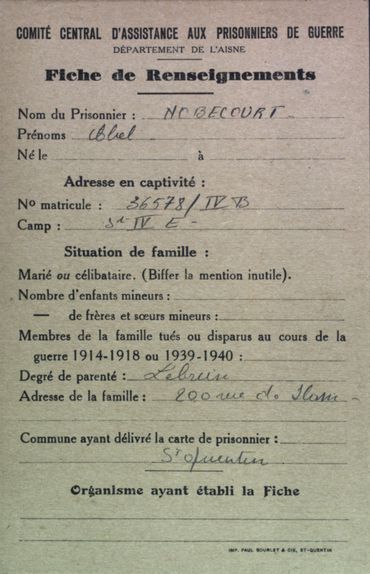 COMITÉ CENTRAL D'ASSISTANCE AUX PRISONNIERS DE GUERRE
DÉPARTEMENT DE L'AISNE
Fiche de Renseignements
Nom du Prisonnier : NOBECOURT
Prénoms Abel
Né le à
Adresse en captivité :
No matricule : 36578/IV B
Camp : IV E -
Situation de famille :
Marié ou célibataire. (Biffer la mention inutile).
Nombre d'enfants mineurs :
— de frères et sœurs mineurs :
Membres de la famille tués ou disparus au cours de la
guerre 1914-1918 ou 1939-1940 :
Degré de parenté : Lebrun
Adresse de la famille : 200 rue de
Commune ayant délivré la carte de prisonnier :
St Quentin
Organisme ayant établi la Fiche
IMP. PAUL BOURLET & CIE, ST-QUENTIN